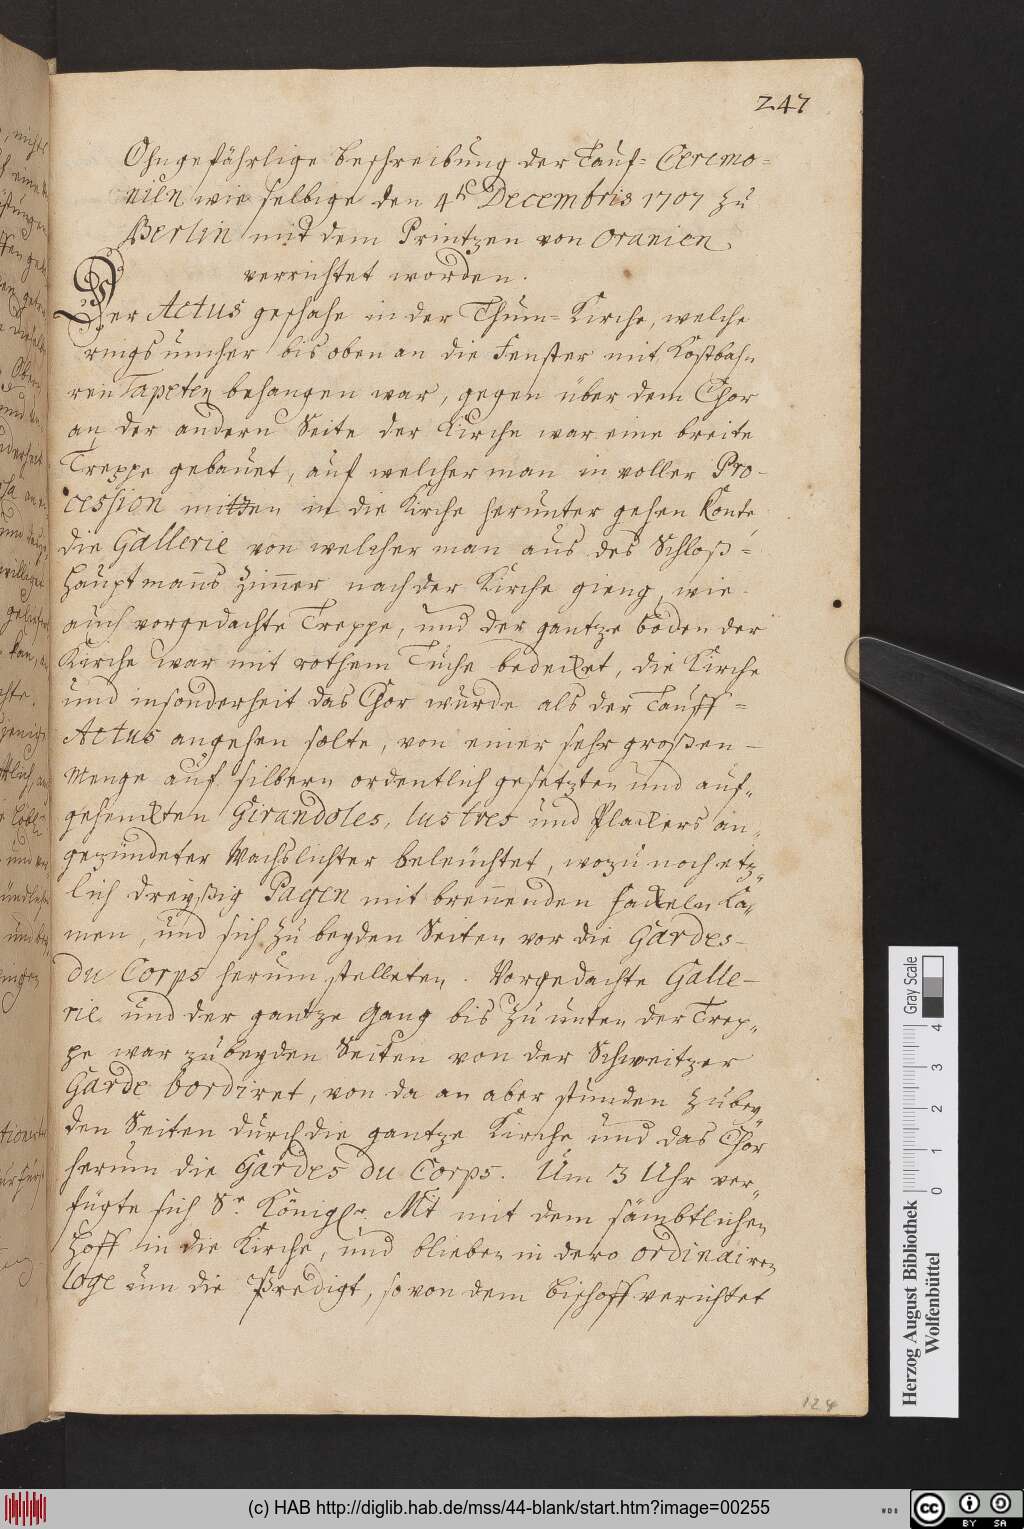 247
Ohngefährlige beschreibung der Tauf= Ceremo=
nien wie selbige den 4ᵗ Decembris 1707 zu
Berlin mit dem Printzen von Oranien
verrichtet worden.
Der Actus geschahe in der Thum= Kirche, welche
rings umher bis oben an die Fenster mit Kostbah,,
ren Tapeten behangen war, gegen über dem Chor
an der andern Seite der Kirche war eine breite
Treppe gebauet, auf welcher man in voller Pro-
cession mitten in die Kirche herunter gehen konte
die Gallerie von welcher man aus des Schloß=
Hauptmans Zimer nach der Kirche gieng, wie
auch vorgedachte Treppe, und der gantze boden der
Kirche war mit rothem Tuche bedecket, die Kirche
und insonderheit das Chor wurde als der Tauff=
Actus angehen solte, von einer sehr großen
Menge auf silbern ordentlich gesetzten und auf,,
gehenckten Girandoles, lustres und Plackers an,,
gezündeter Wachslichter beleuchtet, wozu noch etz,,
lich dreyßig Pagen mit brennenden fackeln ka,,
men, und sich zu beyden Seiten vor die Gardes-
du Corps herum stelleten. Vorgedachte Galle-
rie und der gantze Gang bis zu unten der Trep,,
pe war zu beyden Seiten von der Schweitzer
Garde bordiret, von da an aber stunden zu bey,,
den Seiten durch die gantze Kirche und das Chor
herum die Gardes du Corps. Um 3 Uhr ver,,
fügte sich Sr. Königl. Mt mit dem sämbtlichen
Hoff in die Kirche, und blieben in dero ordinairen
loge um die Predigt, so von dem bischoff verichtet
124
Herzog August Bibliothek
Wolfenbüttel
Gray Scale
0 1 2 3 4
(c) HAB http://diglib.hab.de/mss/44-blank/start.htm?image=00255
WDB
cc BY SA